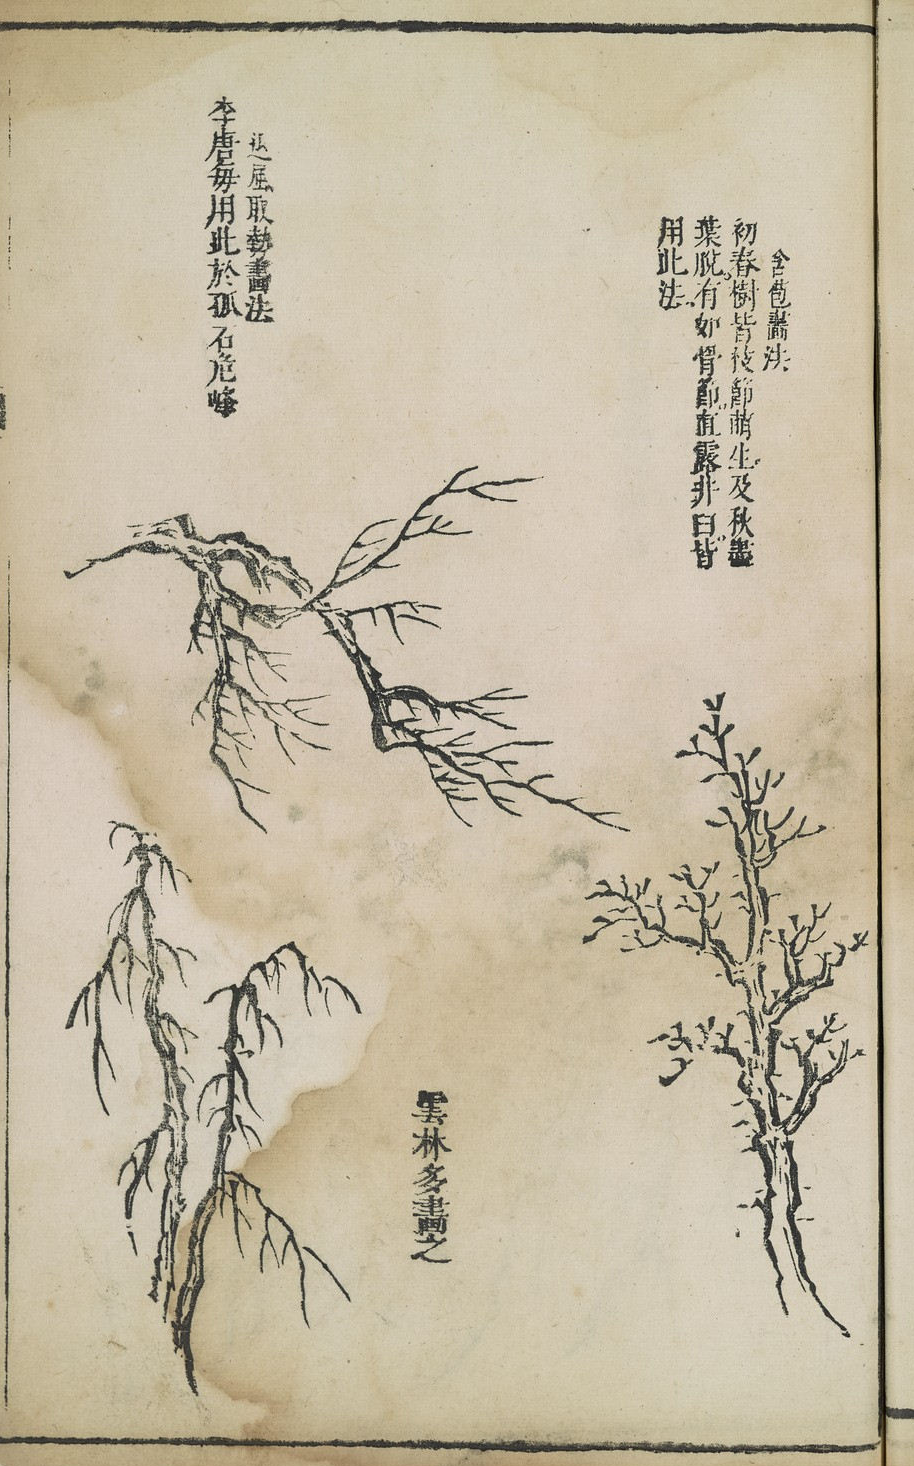 含苞畫法
初春樹皆枝節萌生及秋盡
葉脫有如骨節直露非臼皆
用此法
屈取勢畫法
李唐每用此於孤石危峰
雲林多畫之